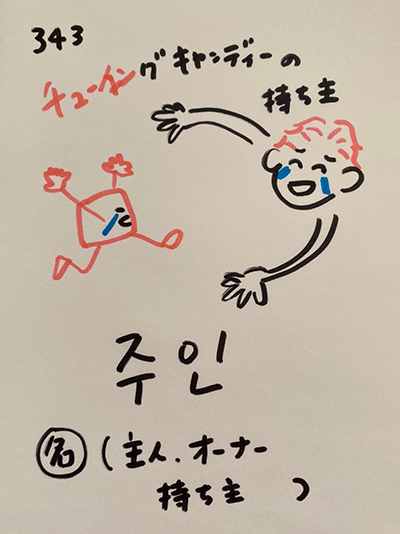 343
チューイングキャンディーの
持ち主
주인
名 (主人、オーナー
持ち主 )